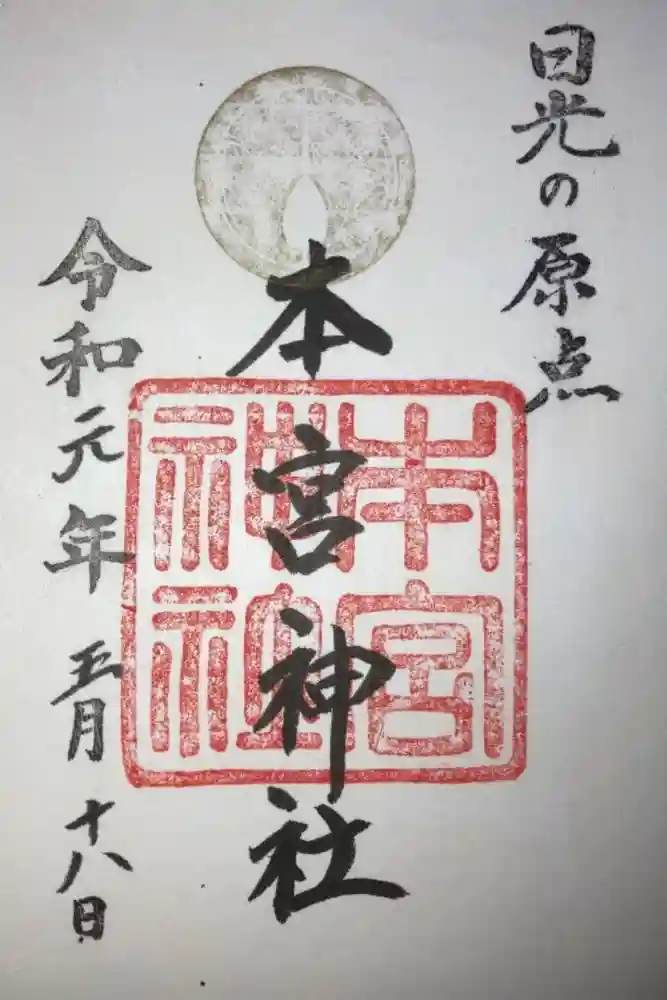 日光の原点
本宮神社
本宮
神社
令和元年五月十八日